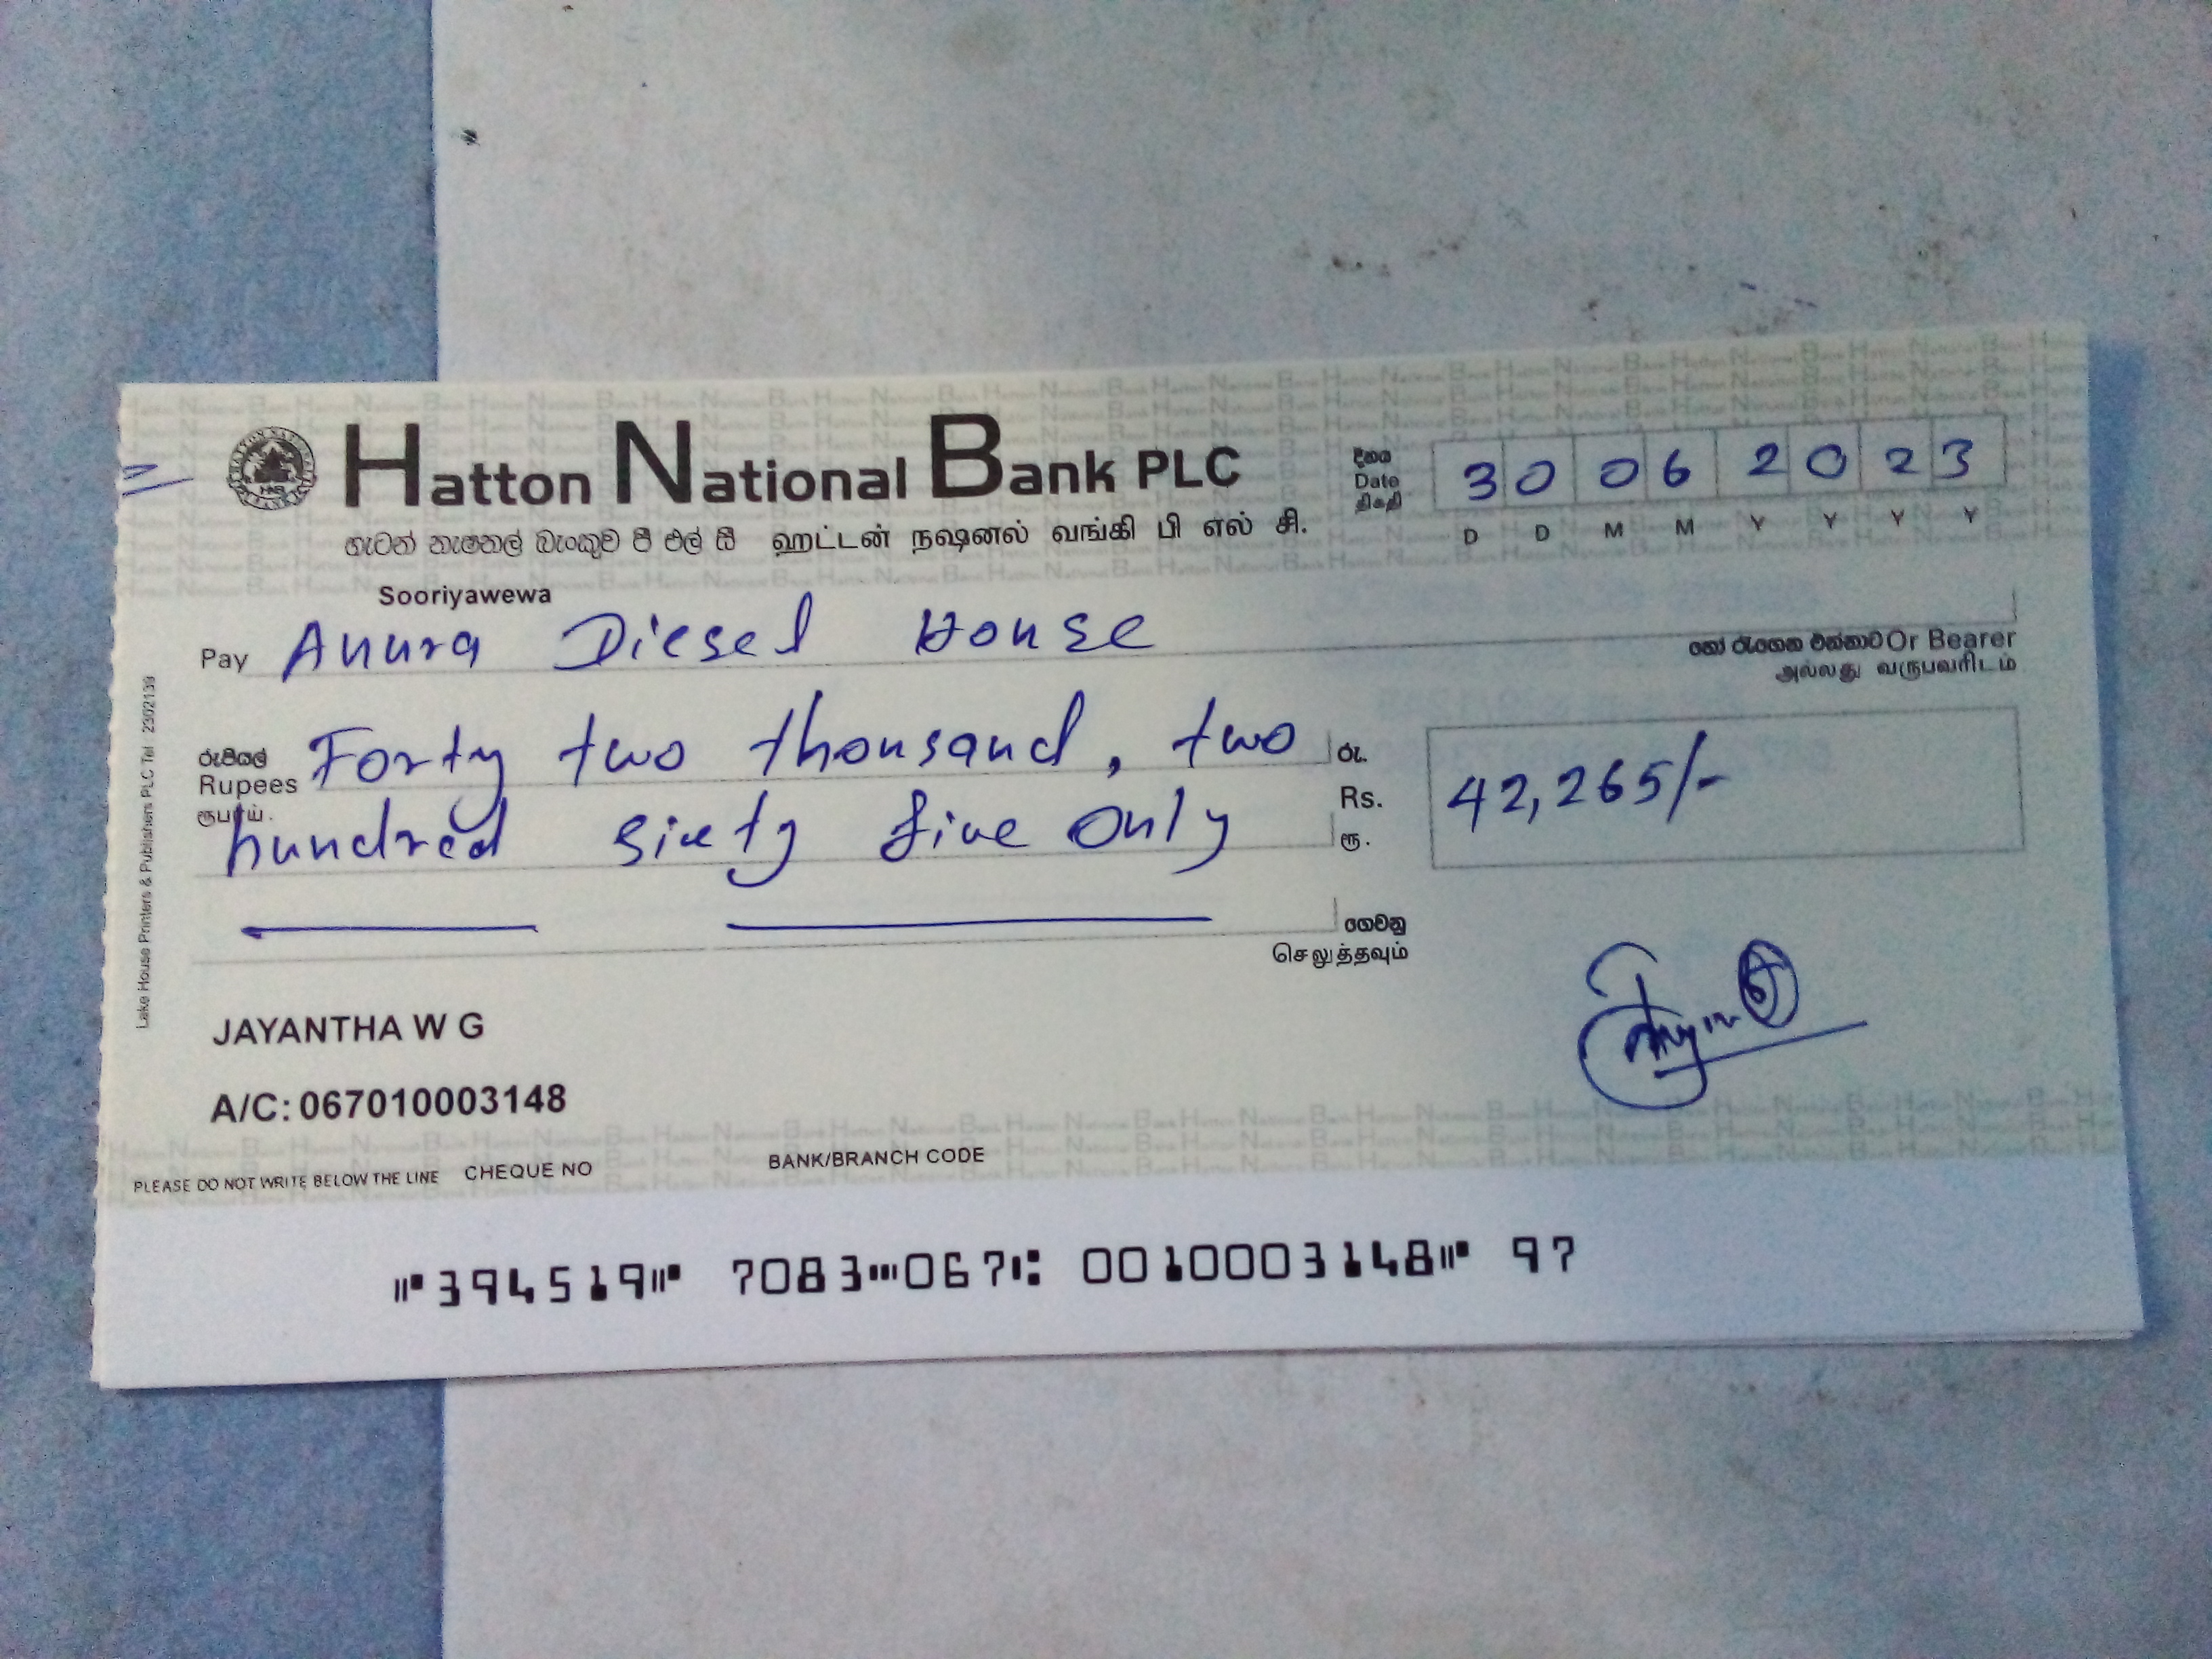 Hatton National Bank PLC
හැටන් නැෂනල් බැංකුව පී එල් සී ஹட்டன் நஷனல் வங்கி பி எல் சி.
Sooriyawewa
දිනය
Date
திகதி
3 0 0 6 2 0 2 3
D D M M Y Y Y Y
Pay Anura Diesel House
හෝ රැගෙන එන්නාට Or Bearer
அல்லது வருபவரிடம்
රුපියල්
Rupees
ரூபாய்.
Forty two thousand, two
hundred sixty five only
රු.
Rs.
ரூ.
42,265/-
ගෙවනු
செலுத்தவும்
Lake House Printers & Publishers PLC Tel 2302139
JAYANTHA W G
A/C: 067010003148
PLEASE DO NOT WRITE BELOW THE LINE CHEQUE NO BANK/BRANCH CODE
⑈394519⑈ 7083⑉067⑆ 0010003148⑈ 97